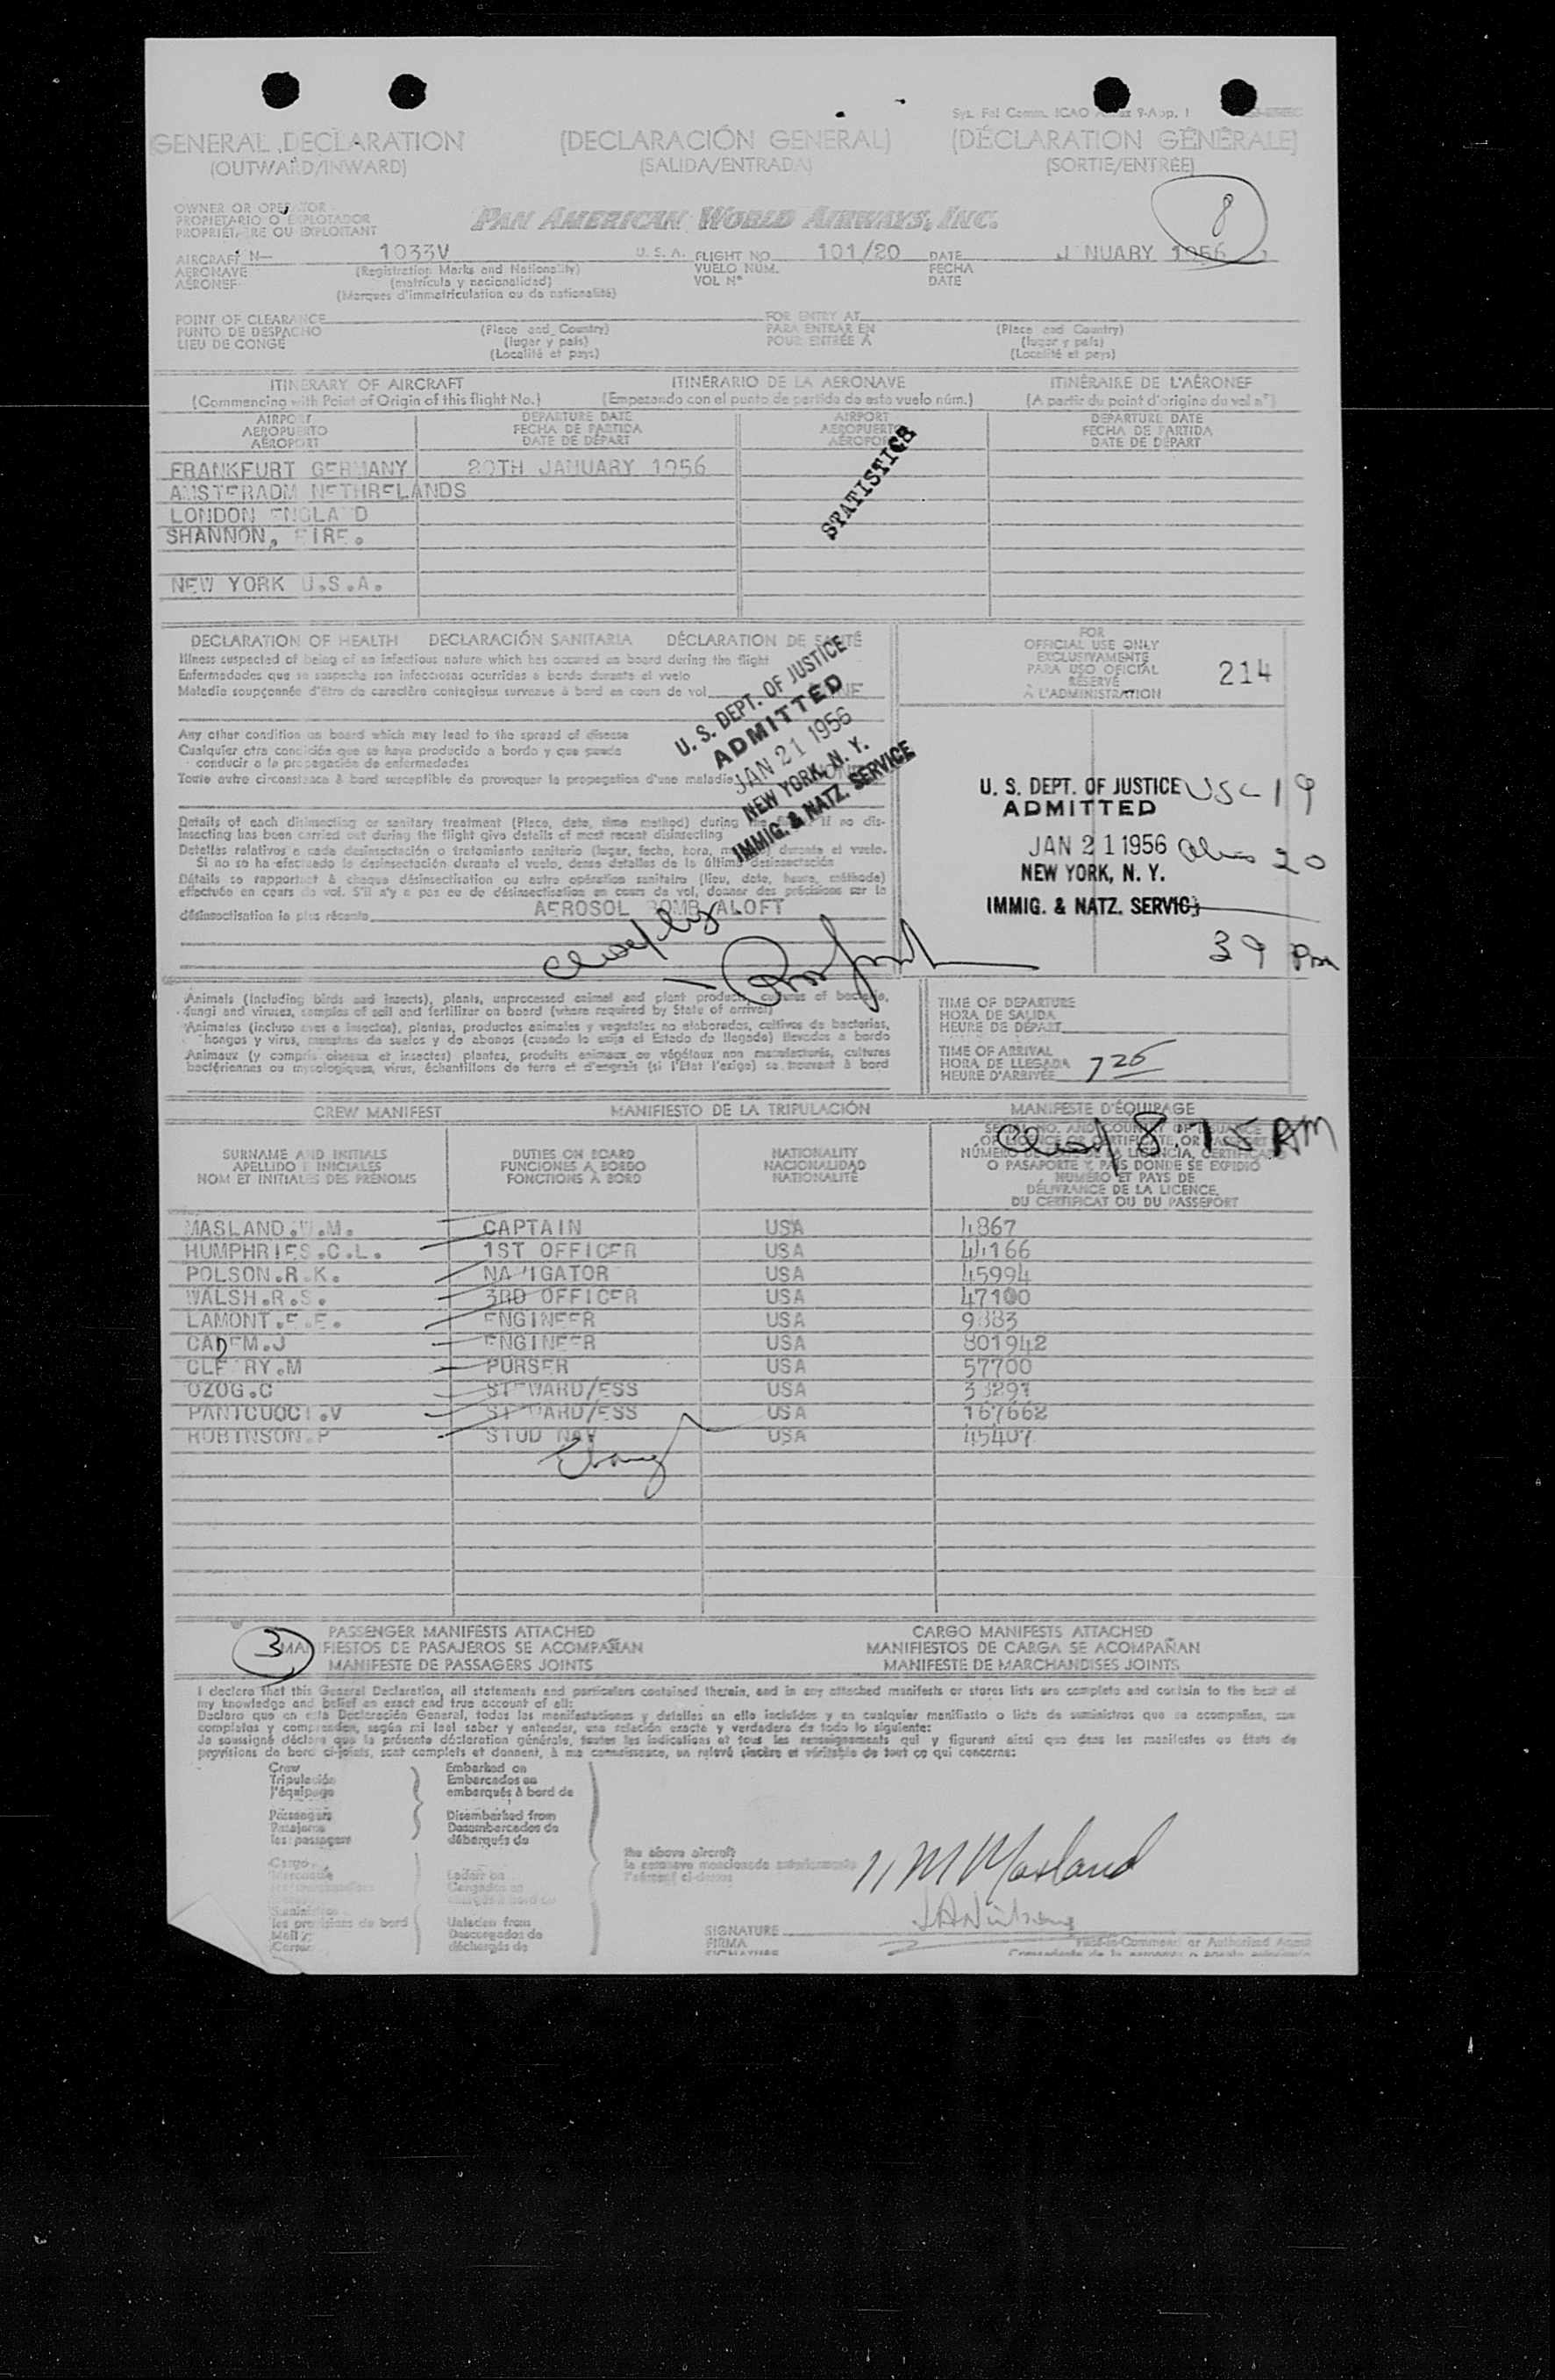 Sys. Fal Comm. ICAO 9-App. 1
GENERAL DECLARATION (DECLARACIÓN GENERAL) (DÉCLARATION GÉNÉRALE)
(OUTWARD/INWARD) (SALIDA/ENTRADA) (SORTIE/ENTRÉE)
8
OWNER OR OPERATOR
PROPIETARIO O EXPLOTADOR
PROPRIÉTAIRE OU EXPLOITANT
PAN AMERICAN WORLD AIRWAYS, INC.
AIRCRAFT N- 1033V U.S.A. FLIGHT NO. 101/20 DATE JANUARY 1956
AERONAVE (Registration Marks and Nationality) VUELO NÚM. FECHA
AÉRONEF (matrícula y nacionalidad) VOL Nº DATE
(Marques d'immatriculation ou de nationalité)
POINT OF CLEARANCE FOR ENTRY AT
PUNTO DE DESPACHO (Place and Country) PARA ENTRAR EN (Place and Country)
LIEU DE CONGÉ (lugar y país) POUR ENTRÉE À (lugar y país)
(Localité et pays) (Localité et pays)
ITINERARY OF AIRCRAFT ITINERARIO DE LA AERONAVE ITINÉRAIRE DE L'AÉRONEF
(Commencing with Point of Origin of this flight No.) (Empezando con el punto de partida de este vuelo núm.) (A partir du point d'origine du vol nº)
AIRPORT DEPARTURE DATE AIRPORT DEPARTURE DATE
AEROPUERTO FECHA DE PARTIDA AEROPUERTO FECHA DE PARTIDA
AÉROPORT DATE DE DÉPART AÉROPORT DATE DE DÉPART
FRANKFURT GERMANY 20TH JANUARY 1956
AMSTERADM NETHRELANDS
LONDON ENGLAND
SHANNON, EIRE.
NEW YORK U.S.A.
STATISTICS
DECLARATION OF HEALTH DECLARACIÓN SANITARIA DÉCLARATION DE SANTÉ
Illness suspected of being of an infectious nature which has occured on board during the flight
Enfermedades que se sospecha son infecciosas ocurridas a bordo durante el vuelo
Maladie soupçonnée d'être de caractère contagieux survenue à bord en cours de vol
Any other condition on board which may lead to the spread of disease
Cualquier otra condición que se haya producido a bordo y que puede
conducir a la propagación de enfermedades
Toute autre circonstance à bord susceptible de provoquer la propagation d'une maladie
U. S. DEPT. OF JUSTICE
ADMITTED
JAN 21 1956
NEW YORK, N. Y.
IMMIG. & NATZ. SERVICE
Details of each disinsecting or sanitary treatment (Place, date, time method) during the flight. If no dis-
insecting has been carried out during the flight give details of most recent disinsecting
Detalles relativos a cada desinsectación o tratamiento sanitario (lugar, fecha, hora, método) durante el vuelo.
Si no se ha efectuado la desinsectación durante el vuelo, dense detalles de la última desinsectación
Détails se rapportant à chaque désinsectisation ou autre opération sanitaire (lieu, date, heure, méthode)
effectuée en cours de vol. S'il n'y a pas eu de désinsectisation en cours de vol, donner des précisions sur la
désinsectisation la plus récente AEROSOL BOMB ALOFT
FOR
OFFICIAL USE ONLY
EXCLUSIVAMENTE
PARA USO OFICIAL
RÉSERVÉ
À L'ADMINISTRATION
214
U. S. DEPT. OF JUSTICE USC 19
ADMITTED
JAN 21 1956 Aliens 20
NEW YORK, N. Y.
IMMIG. & NATZ. SERVICE
39
Animals (including birds and insects), plants, unprocessed animal and plant products, cultures of bacteria,
fungi and viruses, samples of soil and fertilizer on board (where required by State of arrival)
Animales (incluso aves e insectos), plantas, productos animales y vegetales no elaborados, cultivos de bacterias,
hongos y virus, muestras de suelos y de abonos (cuando lo exija el Estado de llegada) llevados a bordo
Animaux (y compris oiseaux et insectes) plantes, produits animaux ou végétaux non manufacturés, cultures
bactériennes ou mycologiques, virus, échantillons de terre et d'engrais (si l'État l'exige) se trouvant à bord
TIME OF DEPARTURE
HORA DE SALIDA
HEURE DE DÉPART
TIME OF ARRIVAL
HORA DE LLEGADA 725
HEURE D'ARRIVÉE
CREW MANIFEST MANIFIESTO DE LA TRIPULACIÓN MANIFESTE D'ÉQUIPAGE
AM
SURNAME AND INITIALS DUTIES ON BOARD NATIONALITY
APELLIDO E INICIALES FUNCIONES A BORDO NACIONALIDAD
NOM ET INITIALES DES PRÉNOMS FONCTIONS À BORD NATIONALITÉ
O PASAPORTE Y PAÍS DONDE SE EXPIDIÓ
NUMÉRO ET PAYS DE
DÉLIVRANCE DE LA LICENCE,
DU CERTIFICAT OU DU PASSEPORT
MASLAND.W.M. CAPTAIN USA 4867
HUMPHRIES.C.L. 1ST OFFICER USA 44166
POLSON.R.K. NAVIGATOR USA 45994
WALSH.R.S. 3RD OFFICER USA 47100
LAMONT.E.E. ENGINEER USA 9883
CADEM.J ENGINEER USA 801942
CLEARY.M PURSER USA 57700
OZOG.C STEWARD/ESS USA
PANTCUOCI.V STEWARD/ESS USA 167662
ROBINSON.P STUD NAV USA 45407
3
PASSENGER MANIFESTS ATTACHED CARGO MANIFESTS ATTACHED
MANIFIESTOS DE PASAJEROS SE ACOMPAÑAN MANIFIESTOS DE CARGA SE ACOMPAÑAN
MANIFESTE DE PASSAGERS JOINTS MANIFESTE DE MARCHANDISES JOINTS
I declare that this General Declaration, all statements and particulars contained therein, and in any attached manifests or stores lists are complete and contain to the best of
my knowledge and belief an exact and true account of all:
Declaro que en esta Declaración General, todas las manifestaciones y detalles en ella incluídos y en cualquier manifiesto o lista de suministros que se acompañan, son
completos y comprenden, según mi leal saber y entender, una relación exacta y verdadera de todo lo siguiente:
Je soussigné déclare que la présente déclaration générale, toutes les indications et tous les renseignements qui y figurent ainsi que dans les manifestes ou états de
provisions de bord ci-joints, sont complets et donnent, à ma connaissance, un relevé sincère et véritable de tout ce qui concerne:
Crew Embarked on
Tripulación Embarcados en
l'équipage embarqués à bord de
Passengers Disembarked from
Pasajeros Desembarcados de
les passagers débarqués de
Cargo
Laden on
Cargados en
the above aircraft
la aeronave mencionada anteriormente
l'aéronef ci-dessus
les provisions de bord Unladen from
Mail Descargados de
Correo déchargés de
W M Masland
SIGNATURE
FIRMA
SIGNATURE
Pilot-in-Command or Authorized Agent
Comandante de la aeronave o agente autorizado